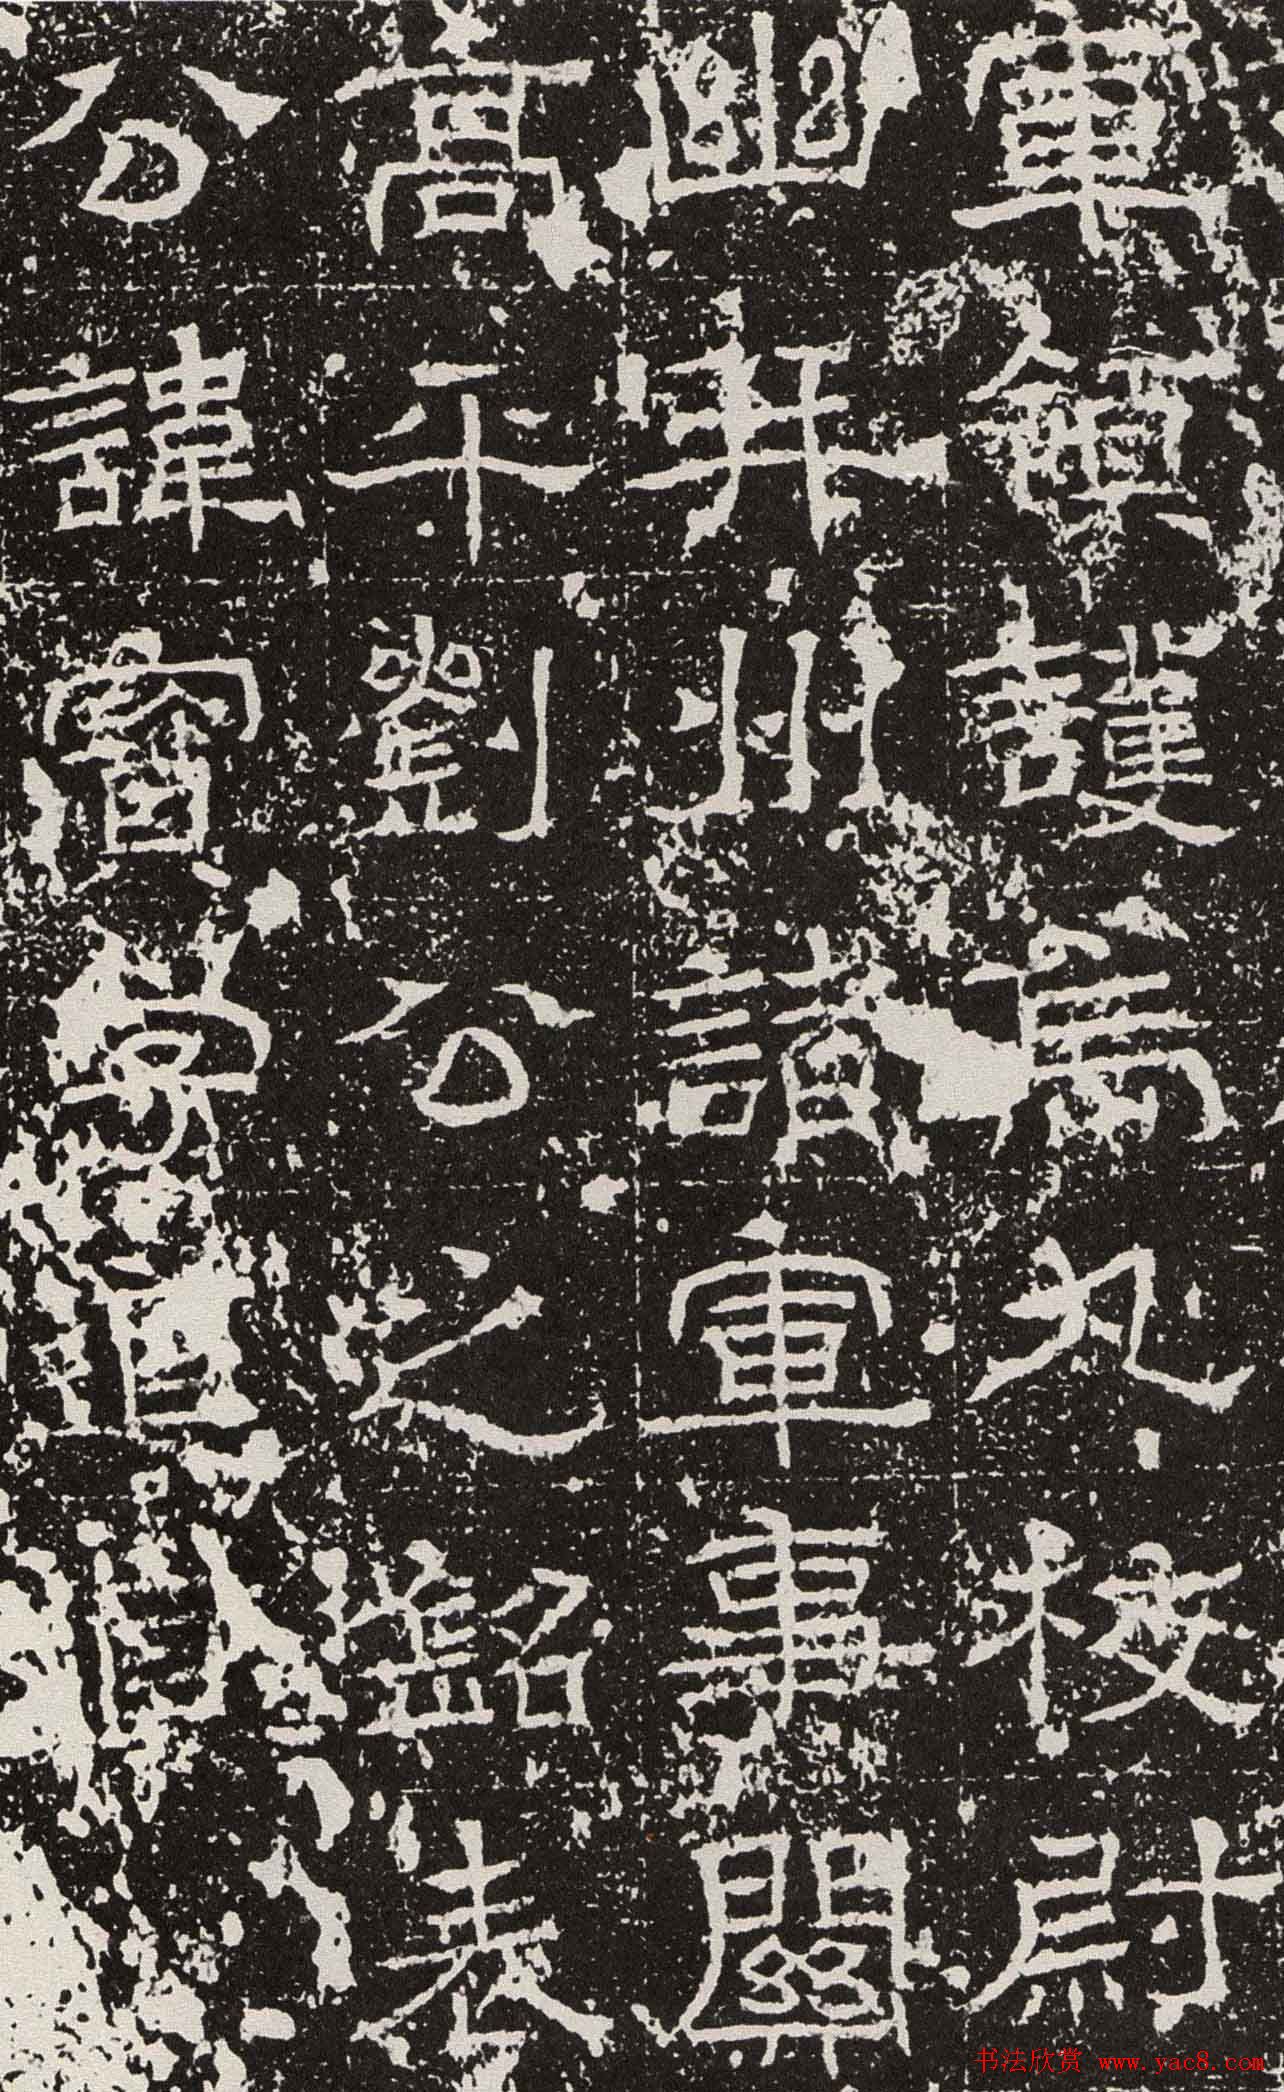 軍領護烏丸校尉
幽并州諸軍事關
高平劉公之銘表
公諱寶字